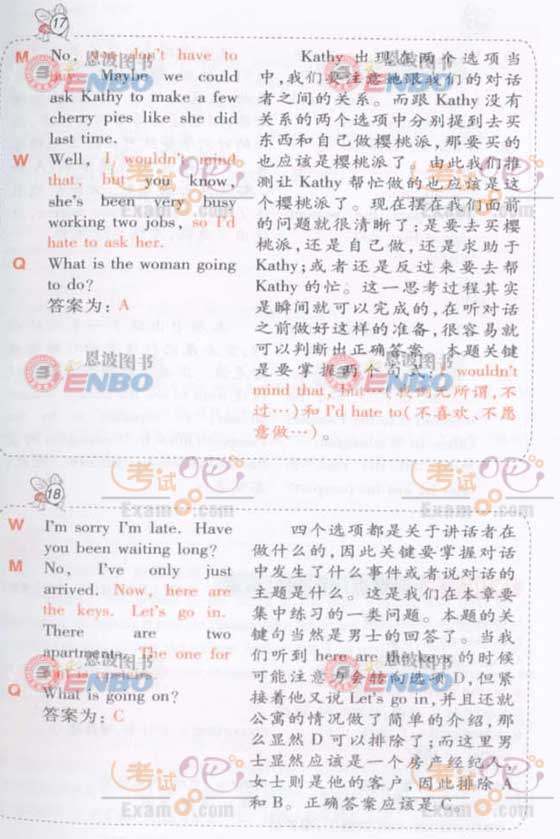 17
M No, you don't have to
buy. Maybe we could
ask Kathy to make a few
cherry pies like she did
last time.
W Well, I wouldn't mind
that, but you know,
she's been very busy
working two jobs, so I'd
hate to ask her.
Q What is the woman going
to do?
答案为：A
Kathy 出现在两个选项当
中,我们要注意她跟我们的对话
者之间的关系。而跟Kathy 没有
关系的两个选项中分别提到去买
东西和自己做樱桃派,那要买的
也应该是樱桃派了！由此我们推
测让 Kathy 帮忙做的也应该是这
个樱桃派了。现在摆在我们面前
的问题就很清晰了:是要去买樱
桃派,还是自己做,还是求助于
Kathy;或者还是反过来要去帮
Kathy 的忙。这一思考过程其实
是瞬间就可以完成的,在听对话
之前做好这样的准备,很容易就
可以判断出正确答案。本题关键
是要掌握两个句式:I wouldn't
mind that, but…(我倒无所谓,不
过…)和 I'd hate to(不喜欢、不愿
意做…)。
18
W I'm sorry I'm late. Have
you been waiting long?
M No, I've only just
arrived. Now, here are
the keys. Let's go in.
There are two
apartments. The one for
Q What is going on?
答案为：C
四个选项都是关于讲话者在
做什么的,因此关键要掌握对话
中发生了什么事件或者说对话的
主题是什么。这是我们在本章要
集中练习的一类问题。本题的关
键句当然是男士的回答了。当我
们听到 here are the keys 的时候
可能注意力会转向选项 D,但紧
接着他又说 Let's go in,并且还就
公寓的情况做了简单的介绍,那
么显然 D 可以排除了;而这里男
士显然应该是一个房产经纪人,
女士则是他的客户,因此排除 A
和 B。正确答案应该是 C。
恩波图书
ENBO
恩波图书
ENBO
考试吧
Exam8.com
考试吧
Exam8.com
恩波图书
ENBO
恩波图书
ENBO
考试吧
Exam8.com
考试吧
Exam8.com
恩波图书
ENBO
恩波图书
ENBO
考试吧
Exam8.com
考试吧
Exam8.com